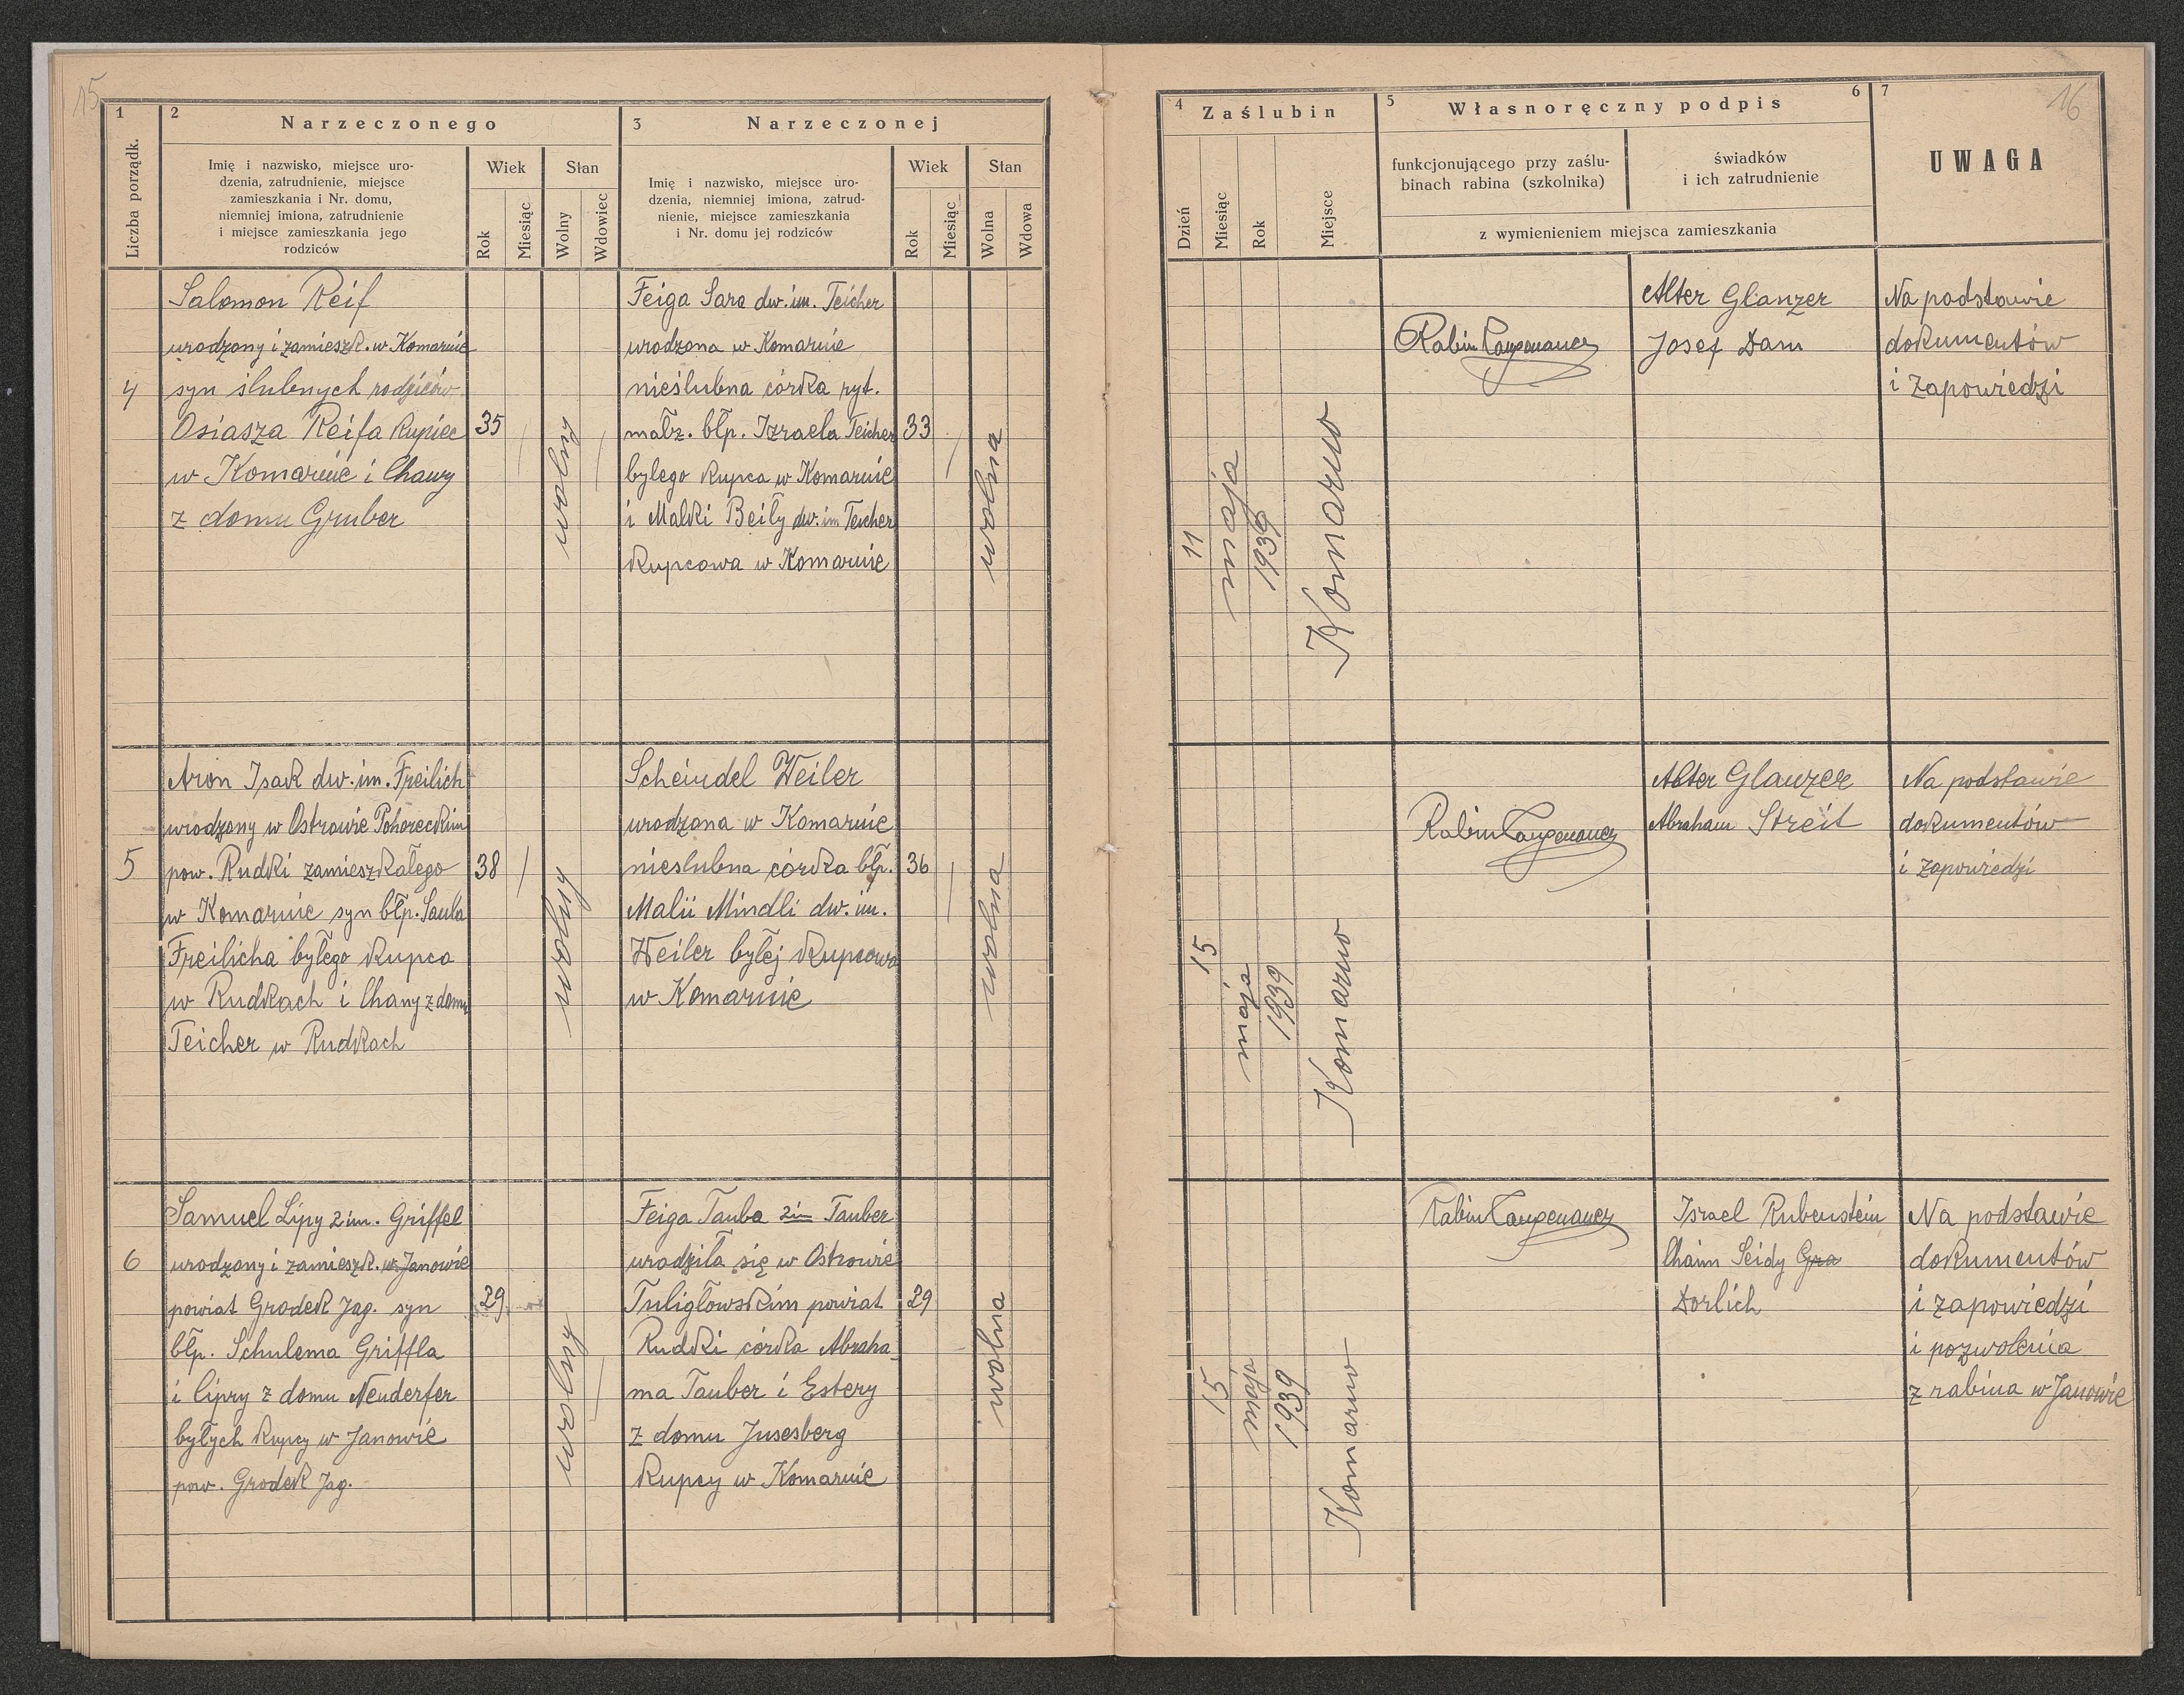 15
1
2
Narzeczonego
3
Narzeczonej
Liczba porządk.
Imię i nazwisko, miejsce uro-
dzenia, zatrudnienie, miejsce
zamieszkania i Nr. domu,
niemniej imiona, zatrudnienie
i miejsce zamieszkania jego
rodziców
Wiek
Rok
Miesiąc
Stan
Wolny
Wdowiec
Imię i nazwisko, miejsce uro-
dzenia, niemniej imiona, zatrud-
nienie, miejsce zamieszkania
i Nr. domu jej rodziców
Wiek
Rok
Miesiąc
Stan
Wolna
Wdowa
4
Salomon Reif
urodzony i zamieszk. w Komarnie
syn ślubnych rodziców
Osiasza Reifa kupiec
w Komarnie i Chawy
z domu Gruber
35
wolny
Feiga Sara dw. im. Teicher
urodzona w Komarnie
nieślubna córka ryt.
małz. błp. Izraela Teicher
bylego kupca w Komarnie
i Malki Beiły dw. im Teicher
kupcowa w Komarnie
33
wolna
5
Aron Isak dw. im. Freilich
urodzony w Ostrowie Pohoreckim
pow. Rudki zamieszkałego
w Komarnie syn błp. Saula
Freilicha byłego kupca
w Rudkach i Chany z domu
Teicher w Rudkach
38
wolny
Scheindel Weiler
urodzona w Komarnie
nieslubna córka błp.
Malii Mindli dw. im.
Weiler byłej kupcowa
w Komarnie
36
wolna
6
Samuel Lipy 2 im. Griffel
urodzony i zamieszk. w Janowie
powiat Grodek Jag. syn
błp. Schulema Griffla
i Cipry z domu Neuderfer
byłych kupcy w Janowie
pow. Grodek Jag.
29
wolny
Feiga Tauba 2im Tauber
urodziła się w Ostrowie
Tuligłowskim powiat
Rudki córka Abraha-
ma Tauber i Estery
z domu Jusesberg
kupcy w Komarnie
29
wolna
16
4
Zaślubin
5
Własnoręczny podpis
6
7
Dzień
Miesiąc
Rok
Miejsce
funkcjonującego przy zaślu-
binach rabina (szkolnika)
świadków
i ich zatrudnienie
z wymienieniem miejsca zamieszkania
UWAGA
11
maja
1939
Komarno
Rabin
Alter Glanzer
Josef Dam
Na podstawie
dokumentów
i Zapowiedzi
15
maja
1939
Komarno
Rabin
Alter Glanzer
Abraham Streit
Na podstawie
dokumentów
i zapowiedzi
15
maja
1939
Komarno
Rabin
Israel Rubenstein
Chaim Seidy Gra
Dorlich
Na podstawie
dokumentów
i zapowiedzi
i pozwolenia
z rabina w Janowie